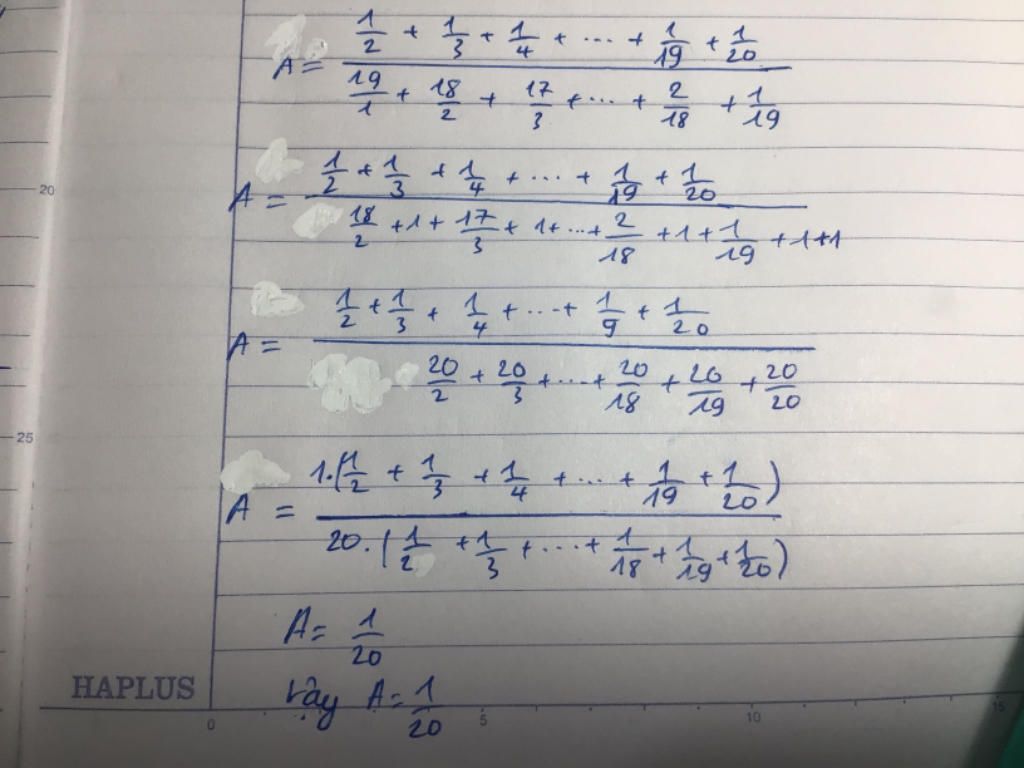 A = (1/2 + 1/3 + 1/4 + ... + 1/19 + 1/20) / (19/1 + 18/2 + 17/3 + ... + 2/18 + 1/19)
20
A = (1/2 + 1/3 + 1/4 + ... + 1/19 + 1/20) / (18/2 + 1 + 17/3 + 1 + ... + 2/18 + 1 + 1/19 + 1 + 1)
A = (1/2 + 1/3 + 1/4 + ... + 1/9 + 1/20) / (20/2 + 20/3 + ... + 20/18 + 20/19 + 20/20)
25
A = 1.(1/2 + 1/3 + 1/4 + ... + 1/19 + 1/20) / 20.(1/2 + 1/3 + ... + 1/18 + 1/19 + 1/20)
A = 1/20
HAPLUS
Vậy A = 1/20
0 5 10 15